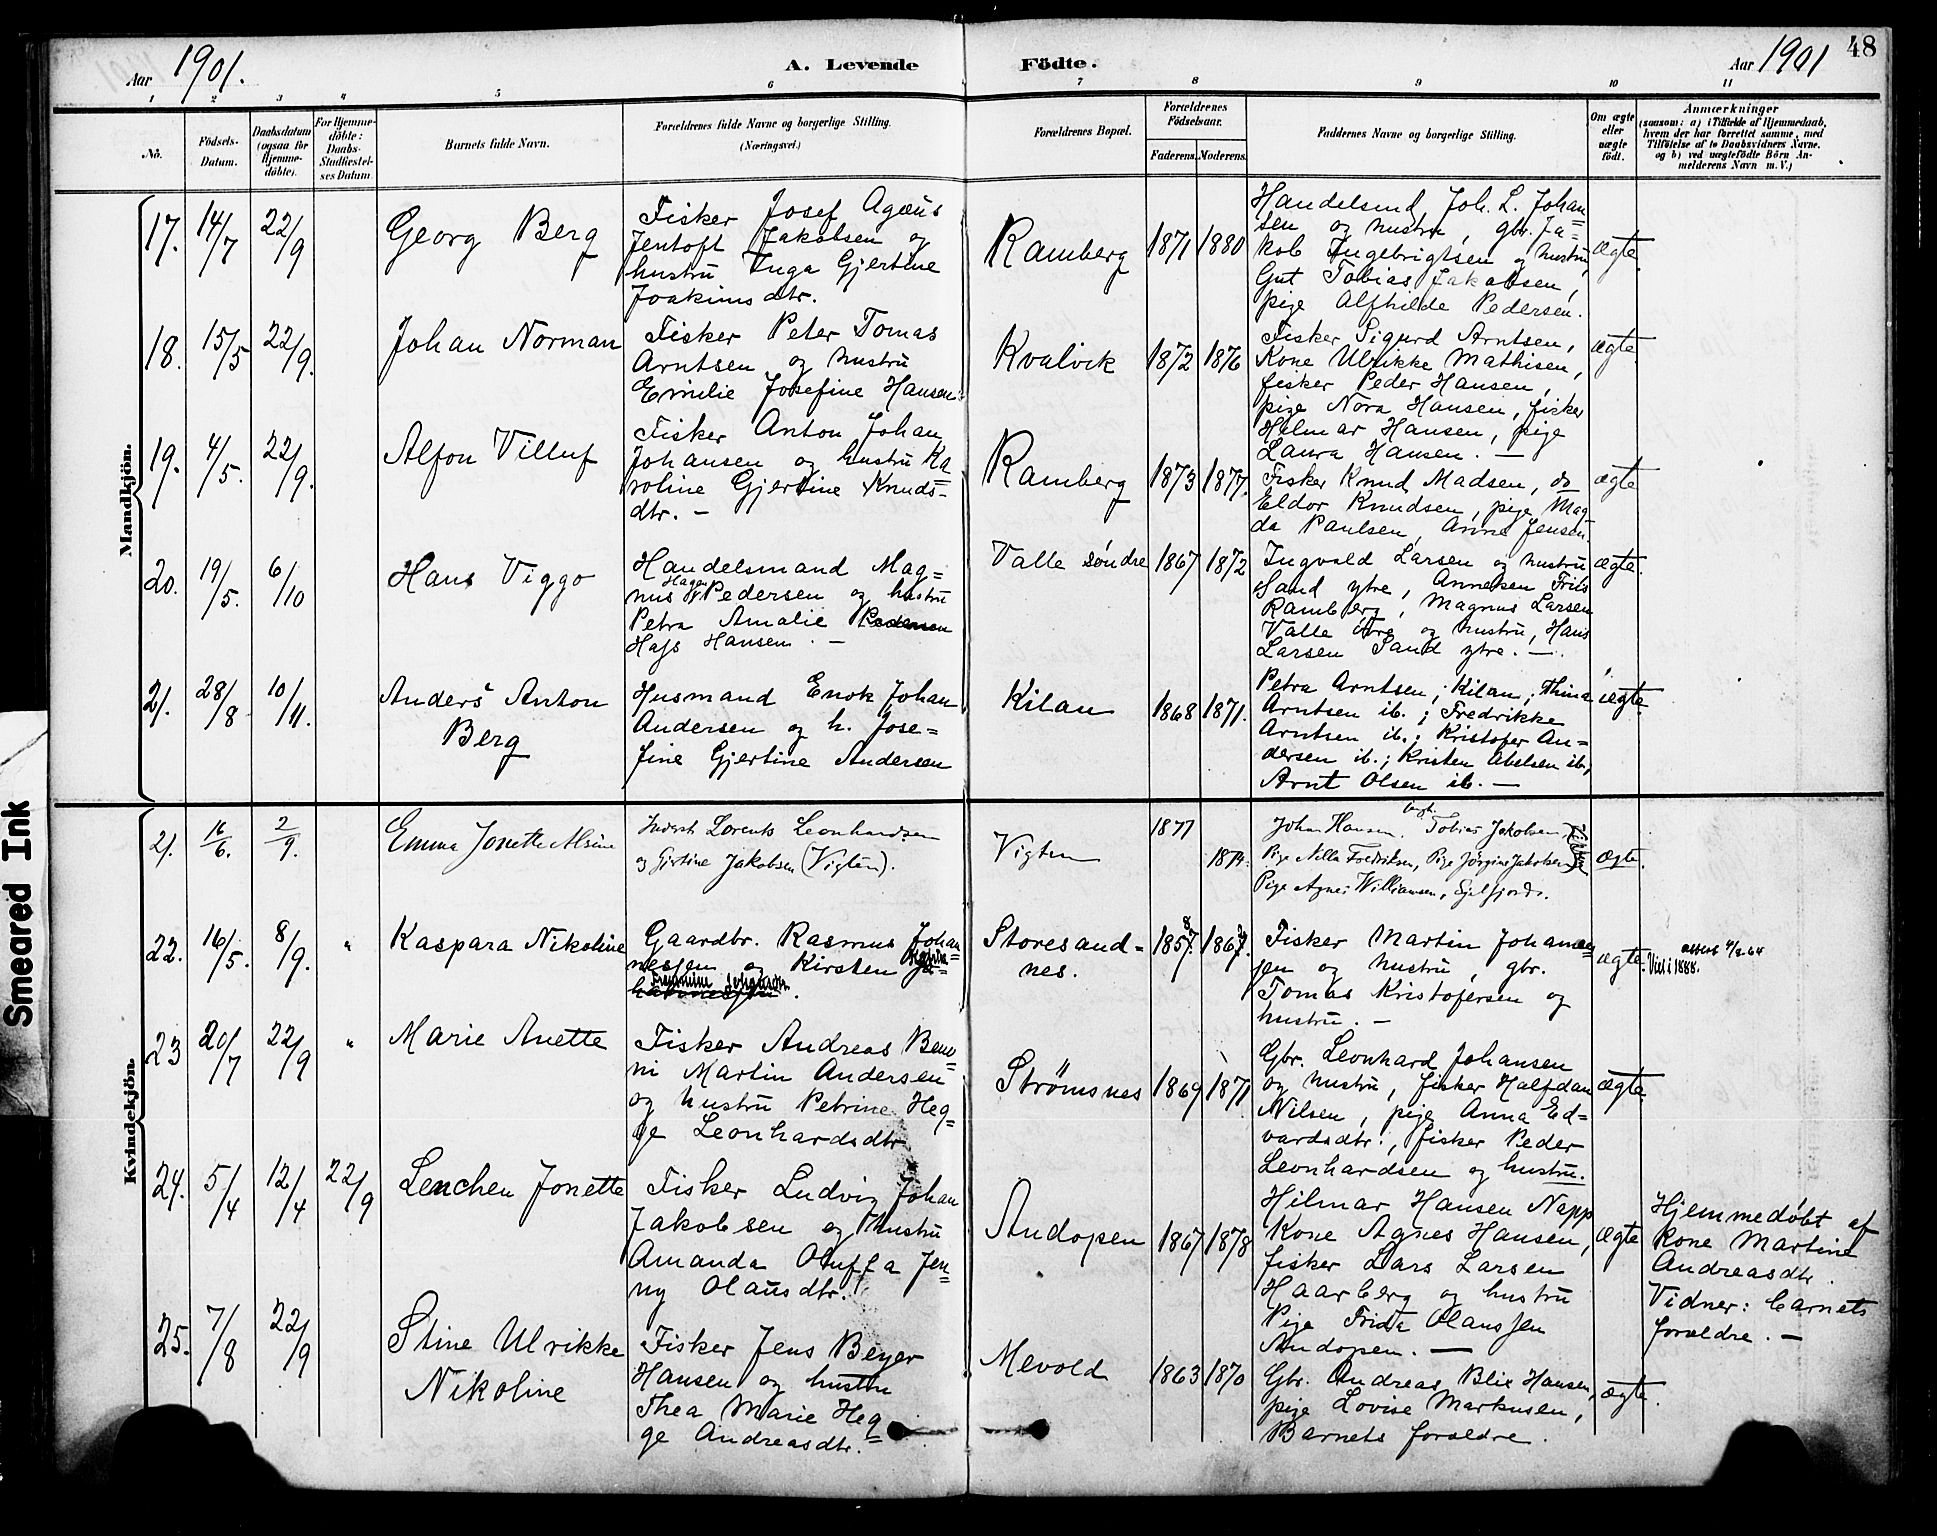 48
Aar 1901.
A. Levende Födte.
Aar 1901
1 2 3 4 5 6 7 8 9 10 11
No.
Födsels-
Datum.
Daabsdatum
(ogsaa for
Hjemme-
döbte).
For Hjemme-
döbte:
Daabs-
Stadfæstel-
ses Datum.
Barnets fulde Navn.
Forældrenes fulde Navne og borgerlige Stilling.
(Næringsvei.)
Forældrenes Bopæl.
Forældrenes
Födselsaar.
Faderens. Moderens.
Faddernes Navne og borgerlige Stilling.
Om ægte
eller
uægte
födt.
Anmærkninger
(saasom: a) i Tilfælde af Hjemmedaab,
hvem der har forrettet samme, med
Tilföielse af to Daabsvidners Navne.
og b) ved uægtefödte Börn An-
melderens Navn m. V.)
Mandkjön.
17. 14/7 22/9
Georg Berg
Fisker Josef Agæus
Jentoft Jakobsen og
hustru Inga Gjertine
Joakimsdtr.
Ramberg
1871 1880
Handelsmd Joh. L. Johan=
sen og hustru, gbr. Ja=
kob Ingebrigtsen og hustru,
Gut Tobias Jakobsen,
pige Alfhilde Pedersen.
ægte.
18. 15/5 22/9.
Johan Norman
Fisker Peter Tomas
Arntsen og hustru
Emilie Josefine Hansen.
Kvalvik
1872 1876
Fisker Sigurd Arntsen,
Kone Ulrikke Mathisen,
fisker Peder Hansen,
pige Nora Hansen, fisker
Hilmar Hansen, pige
Laura Hansen. —
ægte.
19. 4/5. 22/9.
Alfon Villuf
Fisker Anton Johan
Johansen og hustru Ka=
roline Gjertine Knuds-
dtr. —
Ramberg
1873 1877.
Fisker Knud Madsen, do
Eldor Knudsen, pige Mag=
da Paulsen, Anna Jensen
ægte
20. 19/5. 6/10
Hans Viggo
Handelsmand Mag=
Hagen
nus Pedersen og hustru
Petra Amalie Pedersen
Hass Hansen. —
Valle söndre
1867 1872
Ingvald Larsen og hustru
Sand ytre, Anneken Friis
Ramberg, Magnus Larsen
Valle övre og hustru, Hans
Larsen Sand ytre. —
ægte.
21. 28/8 10/11.
Anders Anton
Berg
Husmand Enok Johan
Andersen og h. Jose=
fine Gjertine Andersen
Kilan
1868 1871.
Petra Arntsen, Kilan; Thina
Arntsen ib.; Fredrikke
Arntsen ib.; Kristofer An=
dersen ib.; Kristen Abelsen ib;
Arnt Olsen ib. —
ægte.
Kvindekjön.
21. 16/6. 2/9.
Emma Jonette Alsine
Inderst Lorents Leonhardsen
og Gjertine Jakobsen (Vigten).
Vigten
1877
1874.
Johan Hansen. Tobias Jakobsen
Pige Nella Fredriksen, Pige Jörgine Jakobsen
Pige Agnes Williamsen, Egelfjord.
ægte.
22. 16/5. 8/9. "
Kaspara Nikoline
Gaardbr. Rasmus Johan
nessen og Kirsten
Johannesen
.
Storesand-
nes.
1857 1867
Fisker Martin Johannes=
sen og hustru, gbr.
Tomas Kristofersen og
hustru. —
ægte.
Viet i 1888.
23 20/7 22/9 "
Marie Anette
Fisker Andreas Beno
ni Martin Andersen
og hustru Petrine Heg=
ge Leonhardsdtr
Strömsnes
1869 1871.
Gbr. Leonhard Johansen
og hustru, fisker Halfdan
Nilsen, pige Anna Ed=
vardsdtr., fisker Peder
Leonhardsen og hustru.
ægte.
24. 5/4 12/4 22/9
Lenchen Jonette
Fisker Ludvig Johan
Jakobsen og hustru
Amanda Oluffa Jen=
ny Olausdtr.
Andopen
1867 1878
Hilmar Hansen Napp
Kone Agnes Hansen,
fisker Lars Larsen
Haarberg og hustru
Pige Frida Olaussen
Andopen. —
ægte
Hjemmedöbt af
kone Martine
Andreasdtr.
Vidner: Barnets
forældre. —
25. 7/8 22/9
Stine Ulrikke
Nikoline
Fisker Jens Beyer
Hansen og hustru
Thea Marie Heg=
ge Andreasdtr.
Mevold
1863 1870
Gbr. Andreas Blix Hansen,
pige Lovise Markusen,
Barnets forældre.
ægte.
Smeared Ink